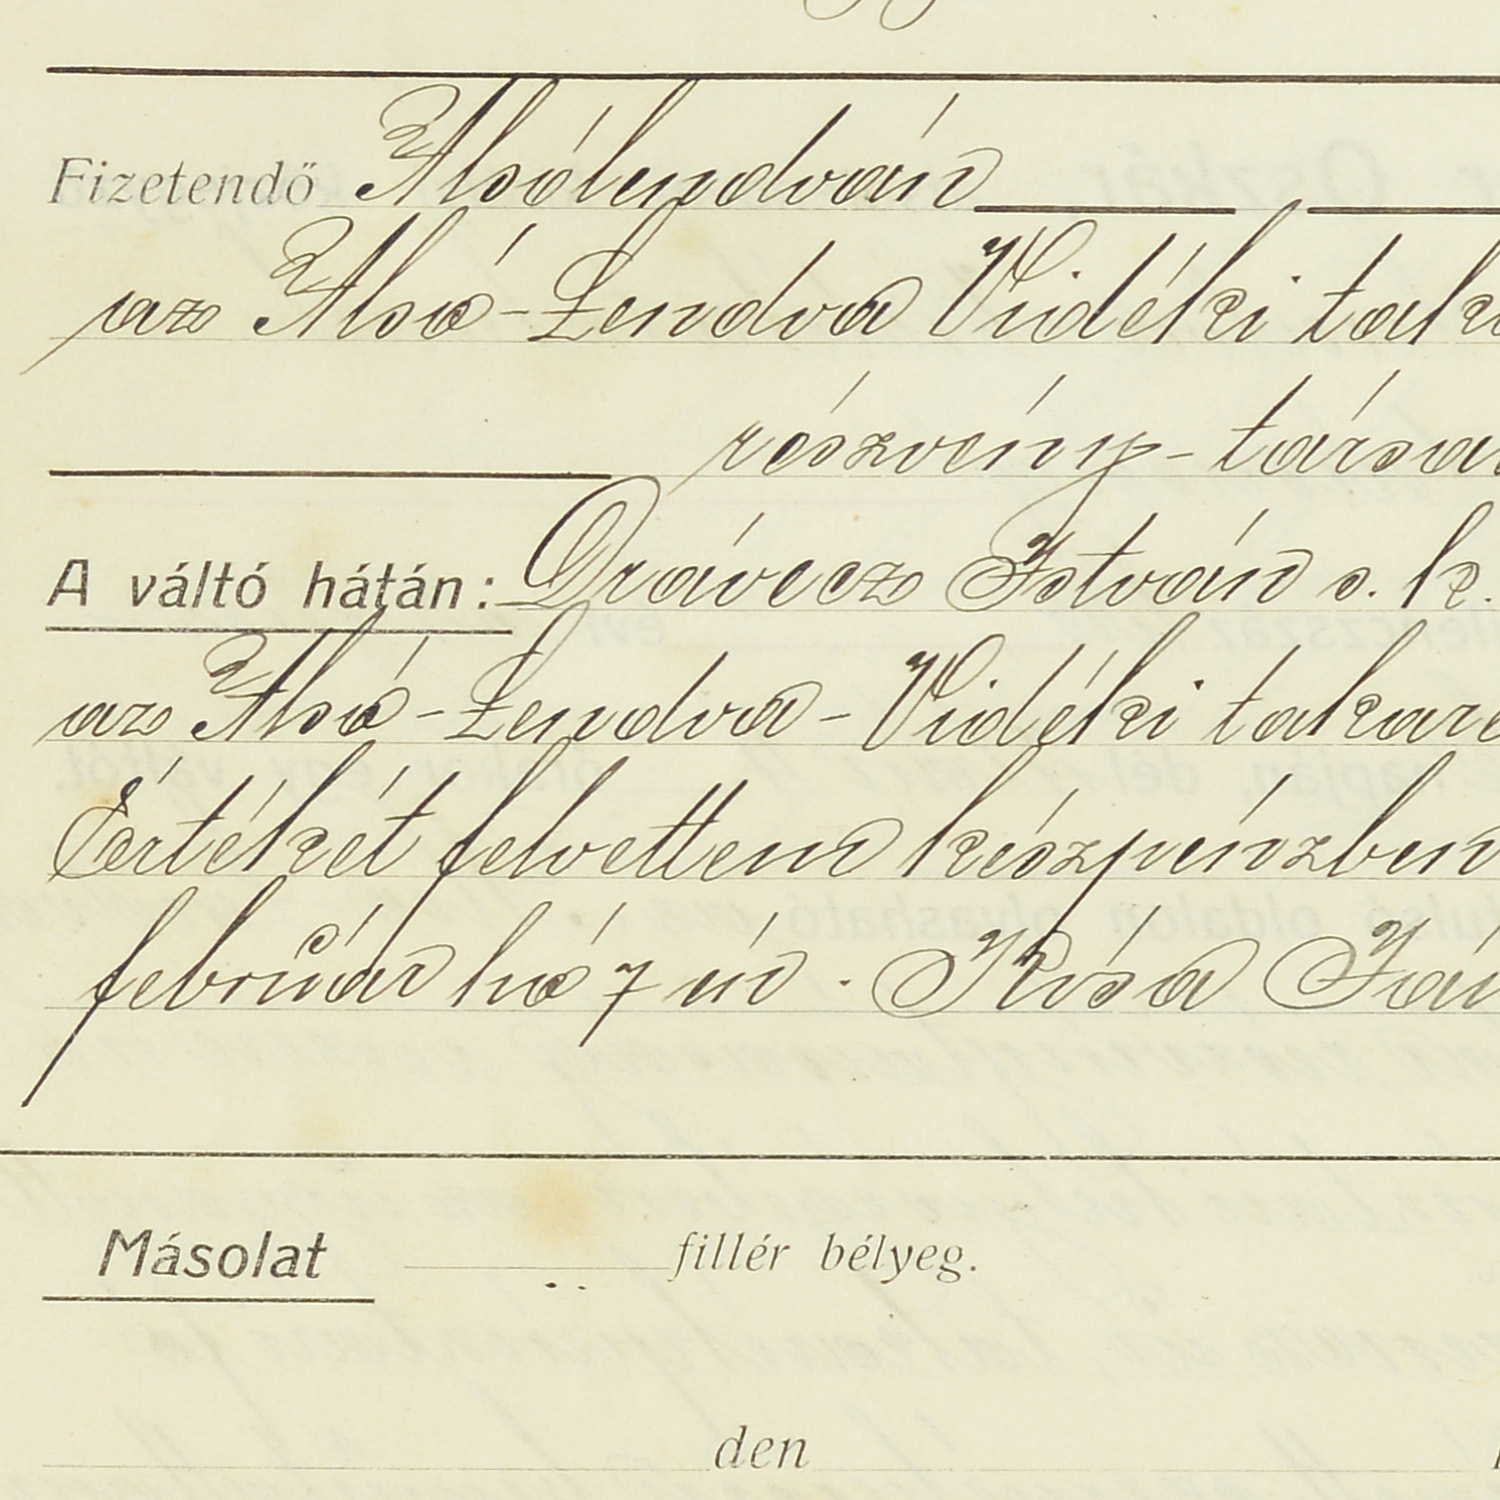 Fizetendő Alsólendván
az Alsó-Lendva Vidéki taka
részvény-társa
A váltó hátán: Drávecz István s. k.
az Alsó-Lendva-Vidéki takaré
Értékét felvettem készpénzben
február hó 7 én. Rósa Ján
Másolat fillér bélyeg.
den